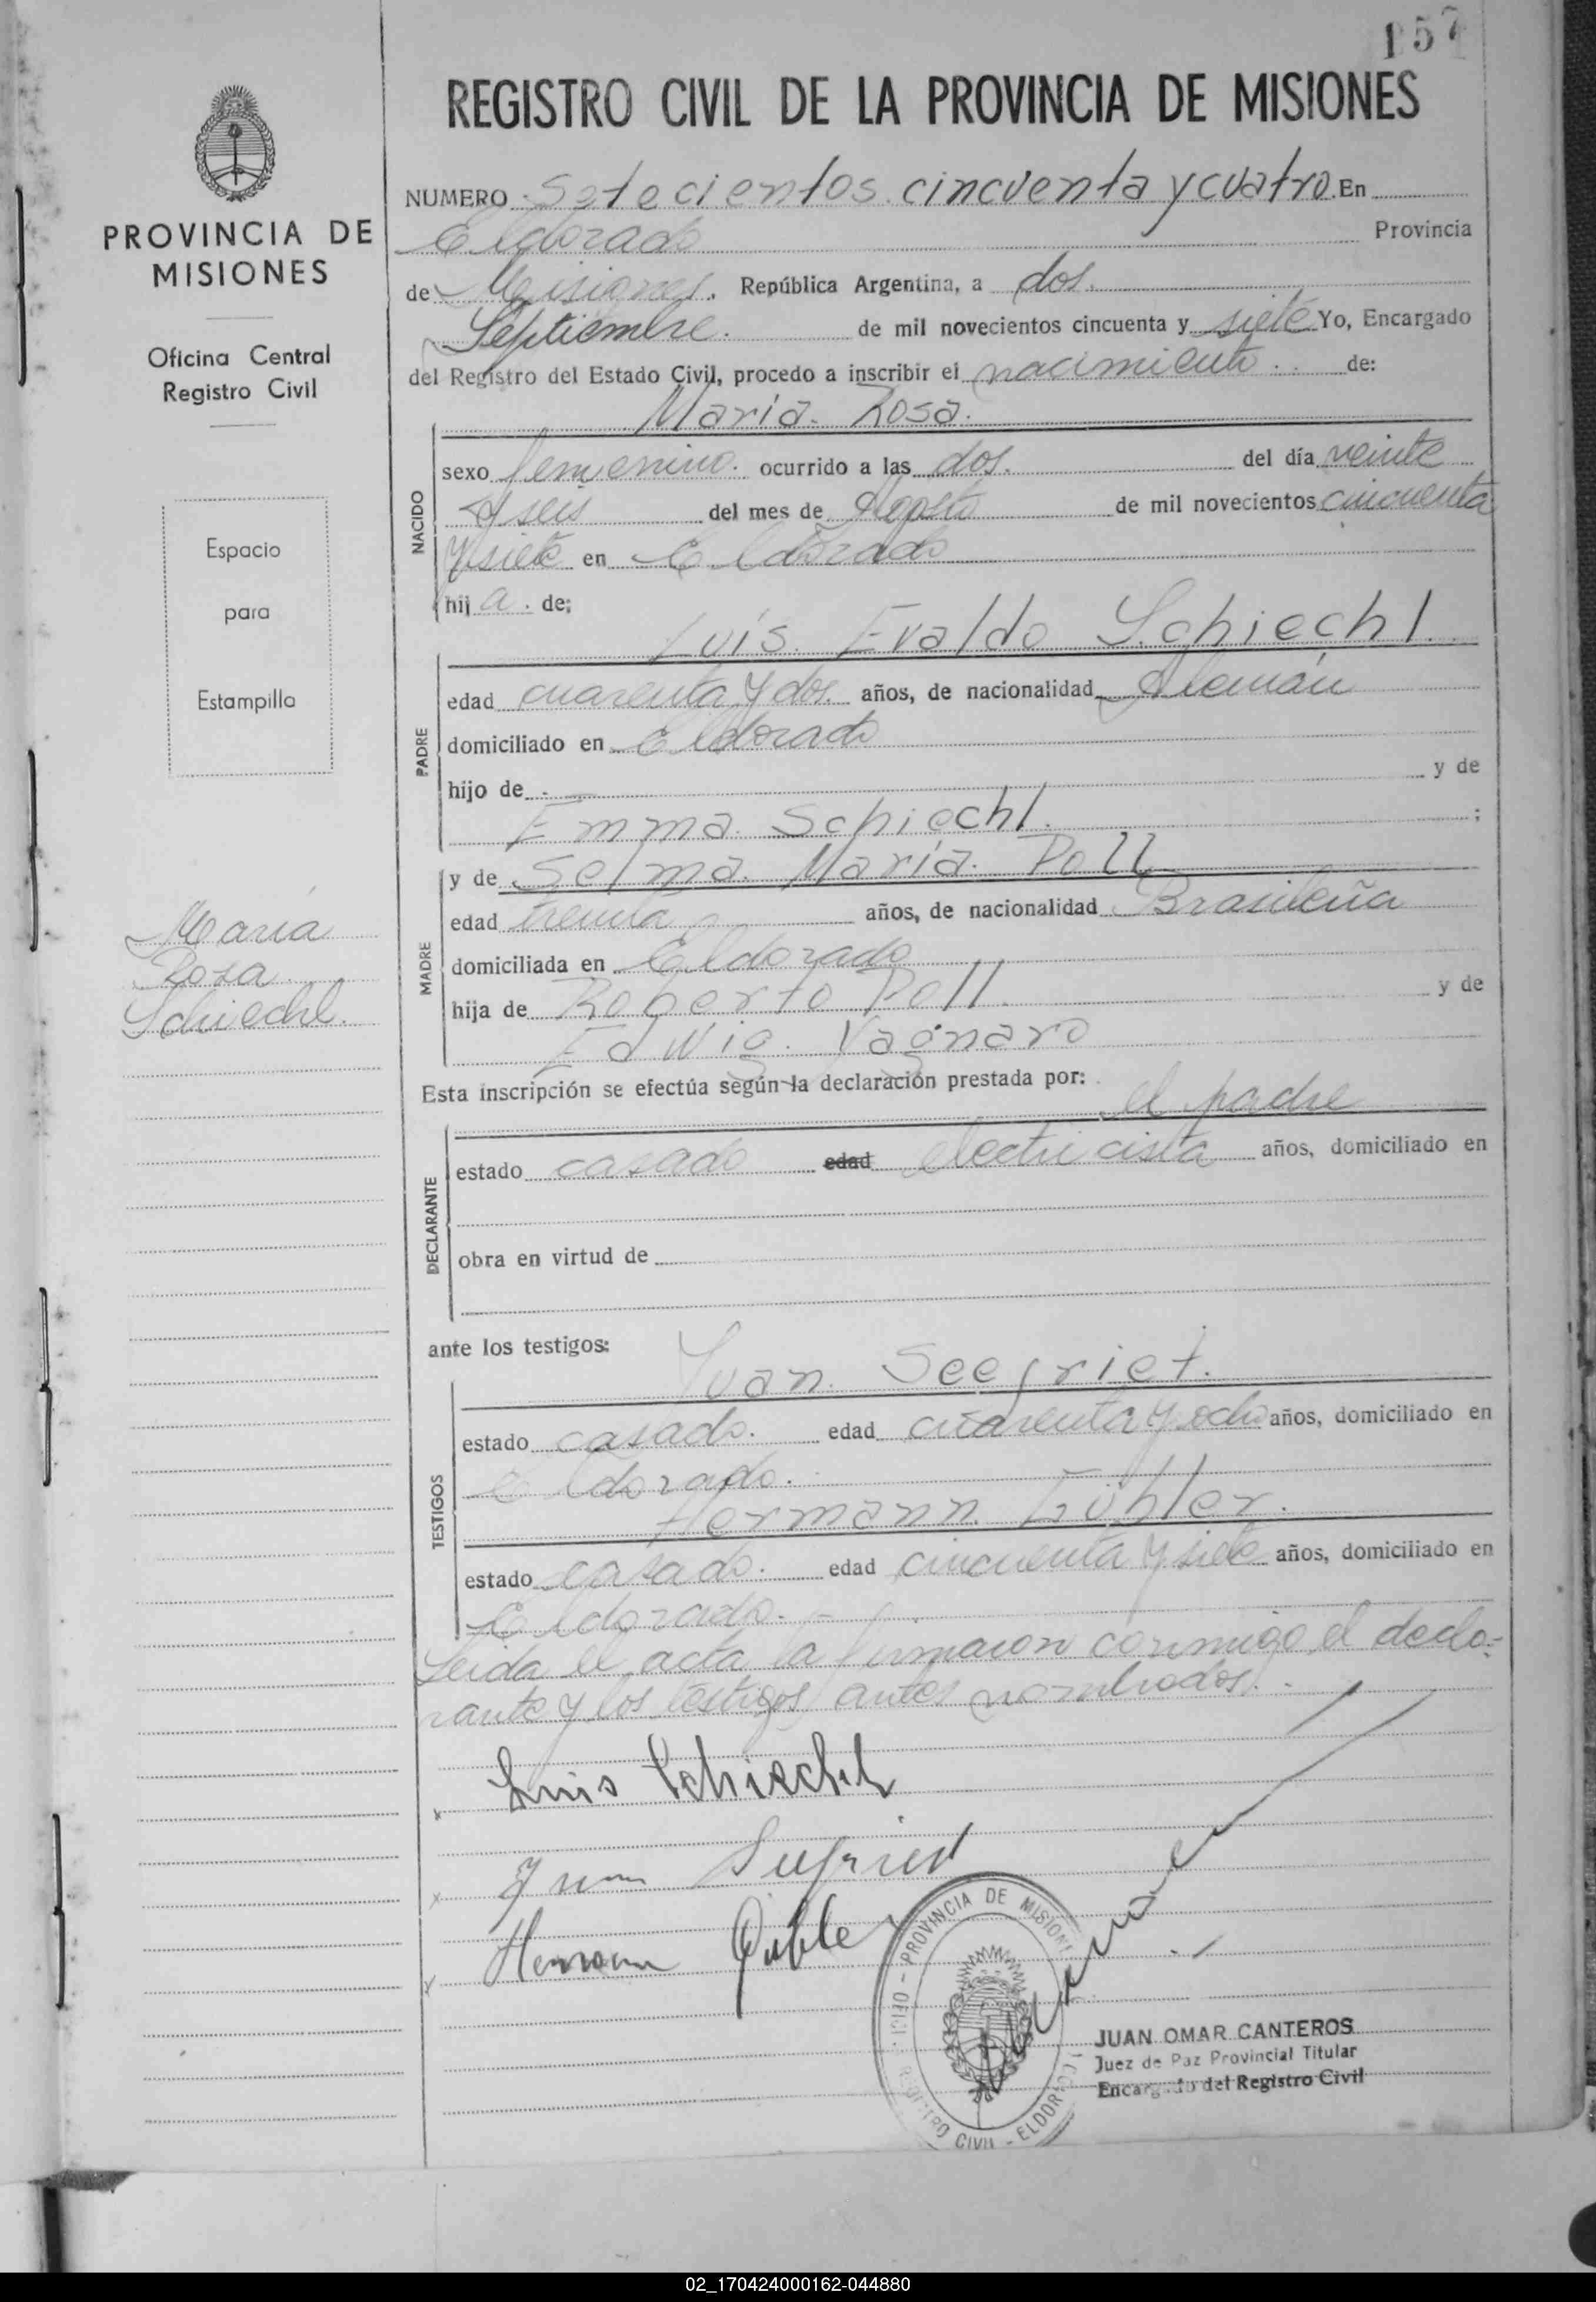 157
REGISTRO CIVIL DE LA PROVINCIA DE MISIONES
PROVINCIA DE
MISIONES
Oficina Central
Registro Civil
Espacio
para
Estampilla
María
Rosa
Schiechl.
NUMERO Setecientos cincuenta y cuatro. En
Eldorado Provincia
de Misiones, República Argentina, a dos.
Septiembre. de mil novecientos cincuenta y siete Yo, Encargado
del Registro del Estado Civil, procedo a inscribir el nacimiento de:
María Rosa.
NACIDO
sexo femenino. ocurrido a las dos. del día veinte
y seis del mes de Agosto de mil novecientos cincuenta
y siete en Eldorado
hij a. de;
Luis Evaldo Schiechl.
PADRE
edad cuarenta y dos. años, de nacionalidad Alemán
domiciliado en Eldorado
hijo de - y de
Emma Schiechl. ;
MADRE
y de Selma María Poll
edad treinta años, de nacionalidad Brasileña
domiciliada en Eldorado
hija de Roberto Poll. y de
Edwig Vagnaro
Esta inscripción se efectúa según la declaración prestada por:
el padre
DECLARANTE
estado casado edad electricista años, domiciliado en
obra en virtud de
ante los testigos:
Juan Seegriet.
TESTIGOS
estado casado. edad cuarenta y ocho años, domiciliado en
Eldorado.
Hermann
estado casado. edad cincuenta y siete años, domiciliado en
Eldorado. -
Leida el acta la firmaron conmigo el decla-
rante y los testigos antes nombrados.
Luis Schiechl
Juan
Hermann
PROVINCIA DE MISIONES
REGISTRO CIVIL - ELDORADO
JUAN OMAR CANTEROS
Juez de Paz Provincial Titular
Encargado del Registro Civil
02_170424000162-044880